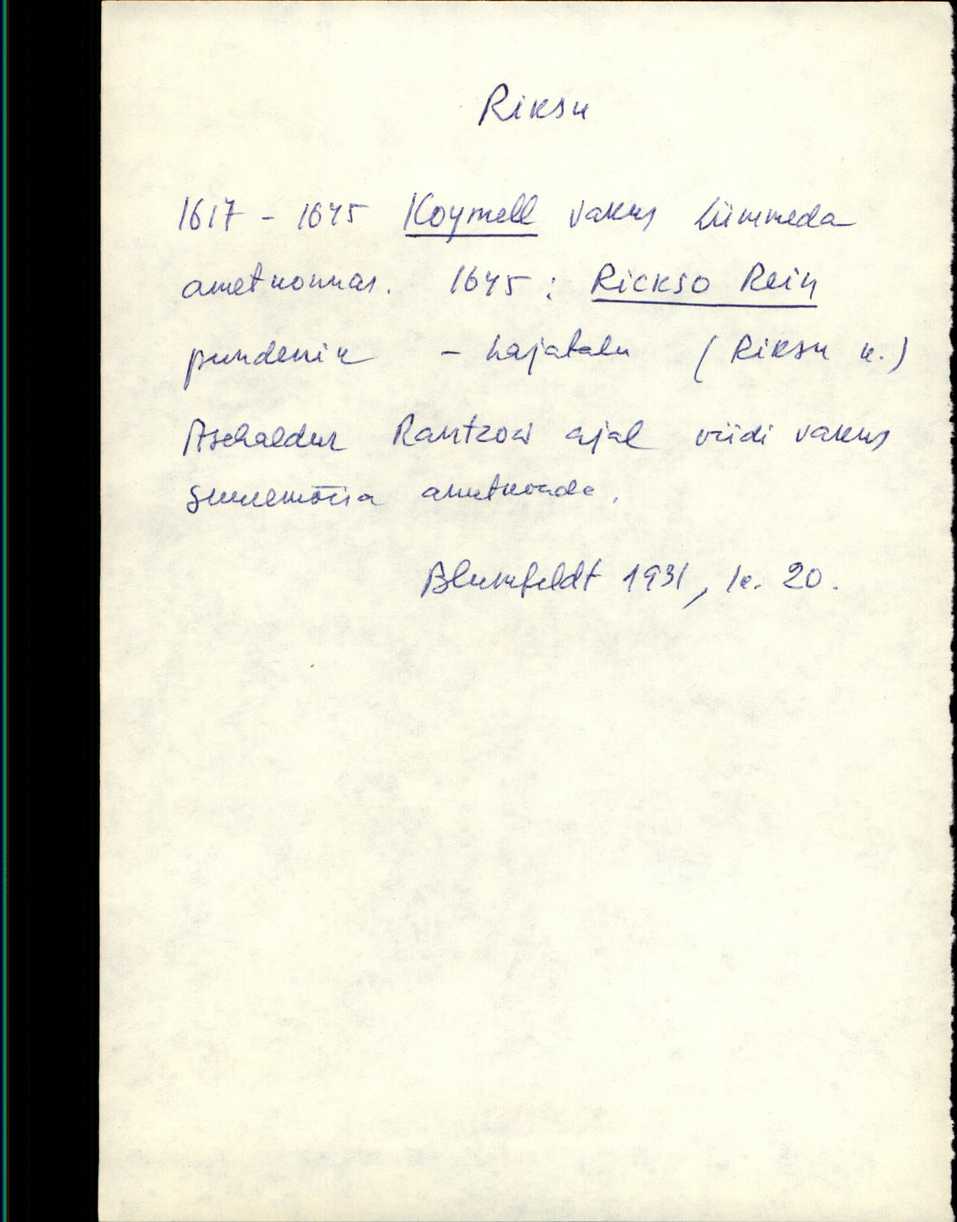 Riksu
1617 - 1645 Koymell vakus Lümmeda
ametkonnas. 1645 : Rickso Rein
pundenik - hajatalu (Riksu k.)
Rantzow ajal viidi vakus
Suuremõisa ametkonda.
Blumfeldt 1931, lk. 20.